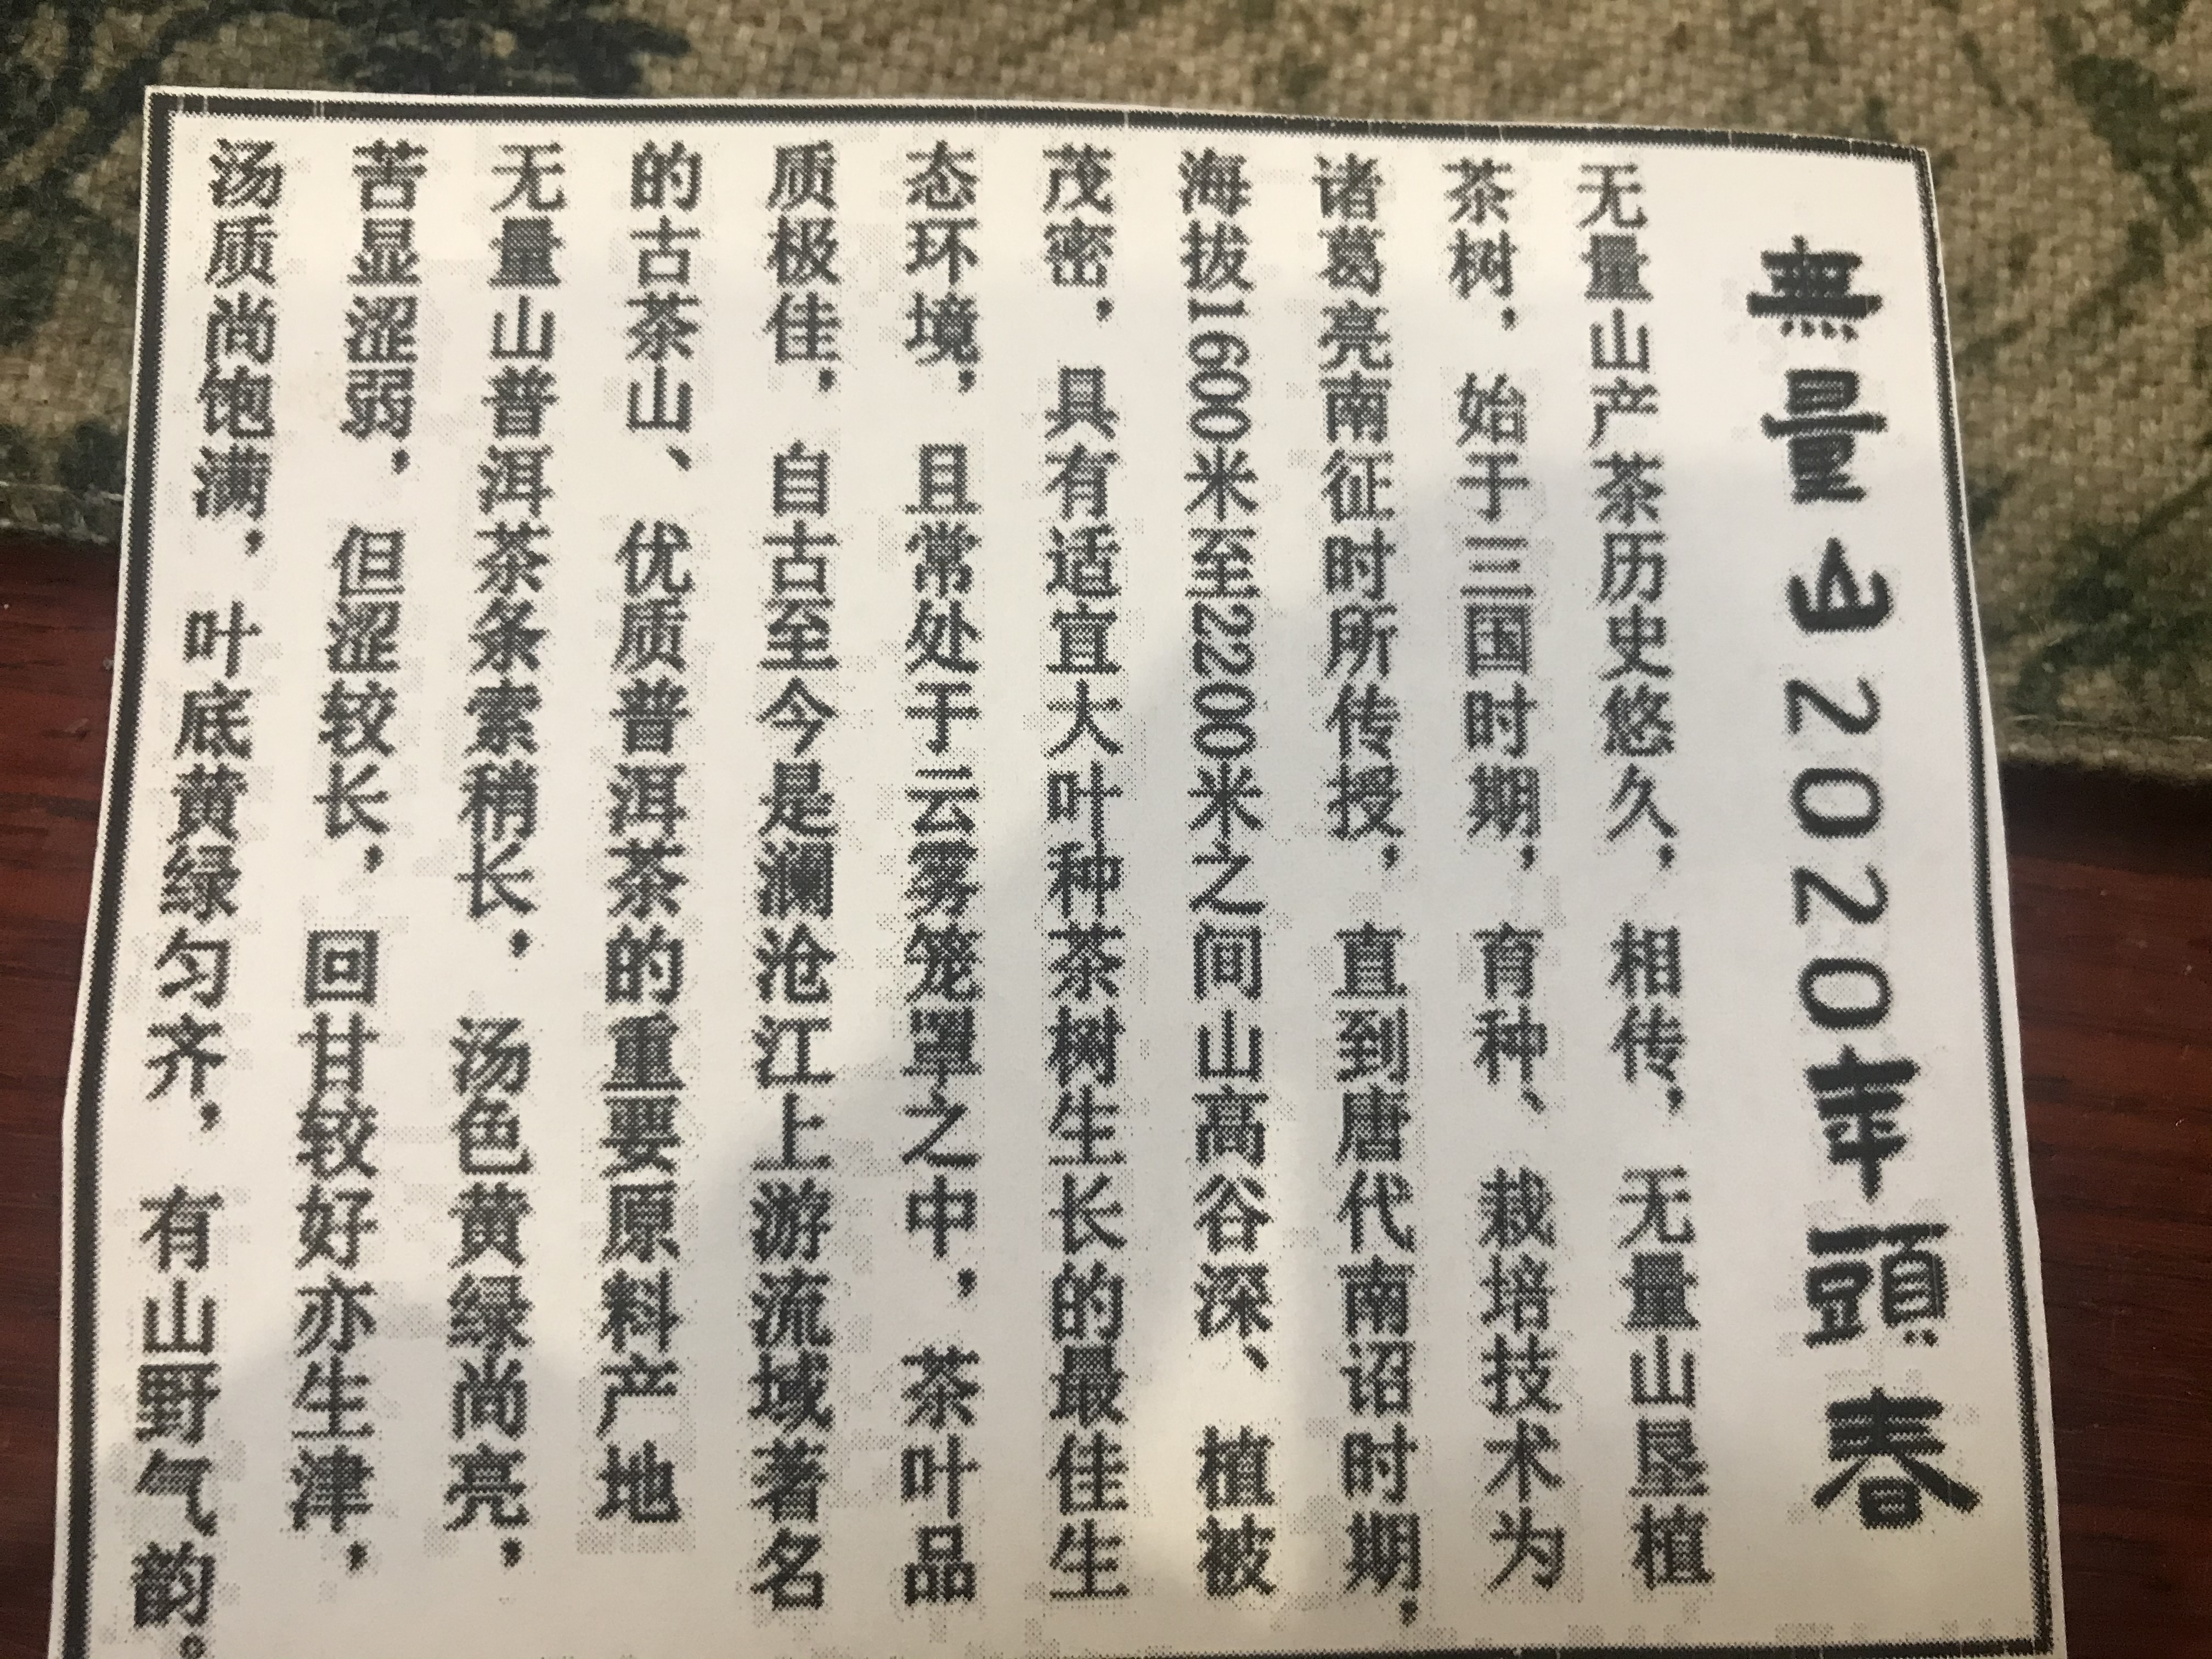 無量山2020年頭春
无量山产茶历史悠久，相传，无量山垦植
茶树，始于三国时期，育种、栽培技术为
诸葛亮南征时所传授，直到唐代南诏时期，
海拔1600米至2200米之间山高谷深、植被
茂密，具有适直大叶种茶树生长的最佳生
态环境，且常处于云雾笼罩之中，茶叶品
质极佳，自古至今是澜沧江上游流域著名
的古茶山、优质普洱茶的重要原料产地
无量山普洱茶条索稍长，汤色黄绿尚亮，
苦显涩弱，但涩较长，回甘较好亦生津，
汤质尚饱满，叶底黄绿匀齐，有山野气韵。